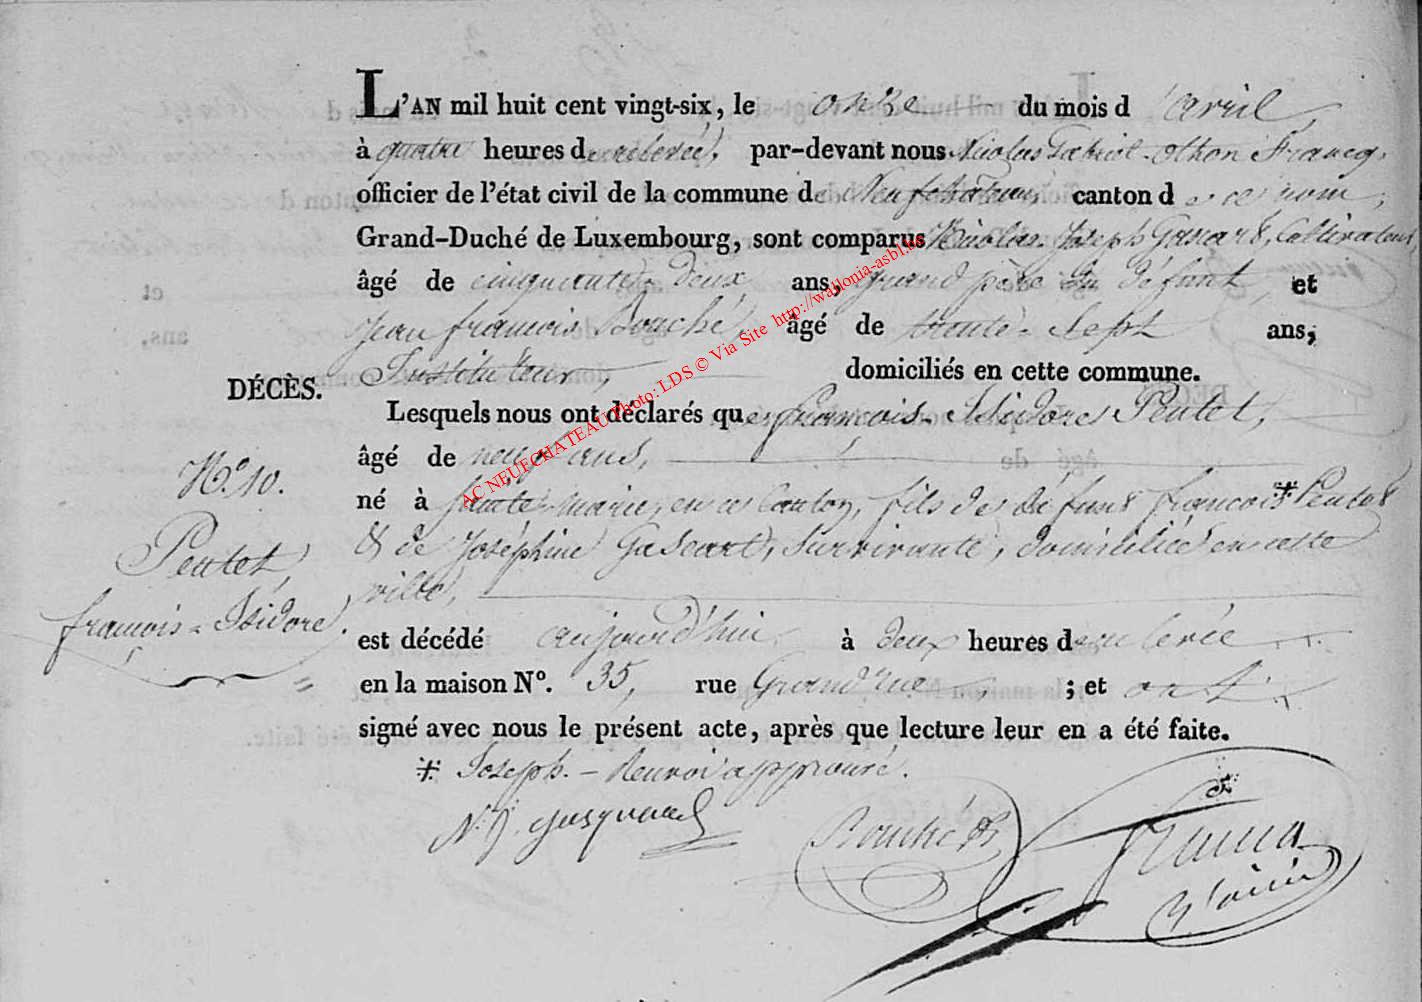 L'AN mil huit cent vingt-six, le onze du mois d'avril,
à quatre heures de relevée, par-devant nous Nicolas othon Francq,
officier de l'état civil de la commune de Neufchateau, canton de ce nom,
Grand-Duché de Luxembourg, sont comparus Nicolas Joseph Cultivateur,
âgé de cinquante-deux ans, grand père du défunt et
Jean françois Bouché, âgé de trente-sept ans,
Instituteur, domiciliés en cette commune.
DÉCÈS.
Lesquels nous ont déclarés que françois-Isidore Pentet,
âgé de neuf ans,
N.º 10.
né à Sainte-Marie, en ce Canton, fils de défunt françois * Pentet
Pentet,
& de Joséphine Survivante, domiciliée en cette
ville,
françois-Isidore.
est décédé aujourd'hui à deux heures de relevée
en la maison Nº. 35, rue Grand'rue ; et ont
signé avec nous le présent acte, après que lecture leur en a été faite.
* Joseph. - Renvoi approuvé.
N. J.
Bouché
AC NEUFCHATEAU Photo: LDS © Via Site http://wallonia-asbl.be